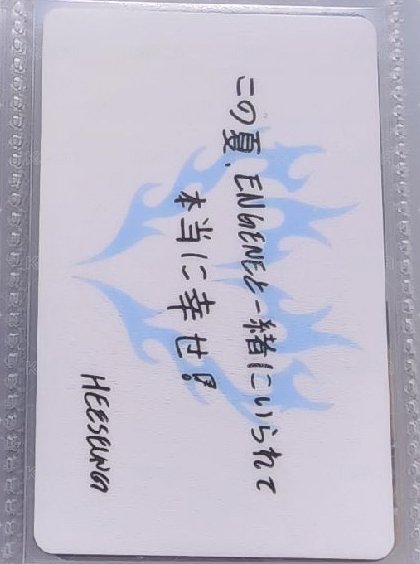 この夏、ENGENEと一緒にいられて
本当に幸せ!
HEESEUNG